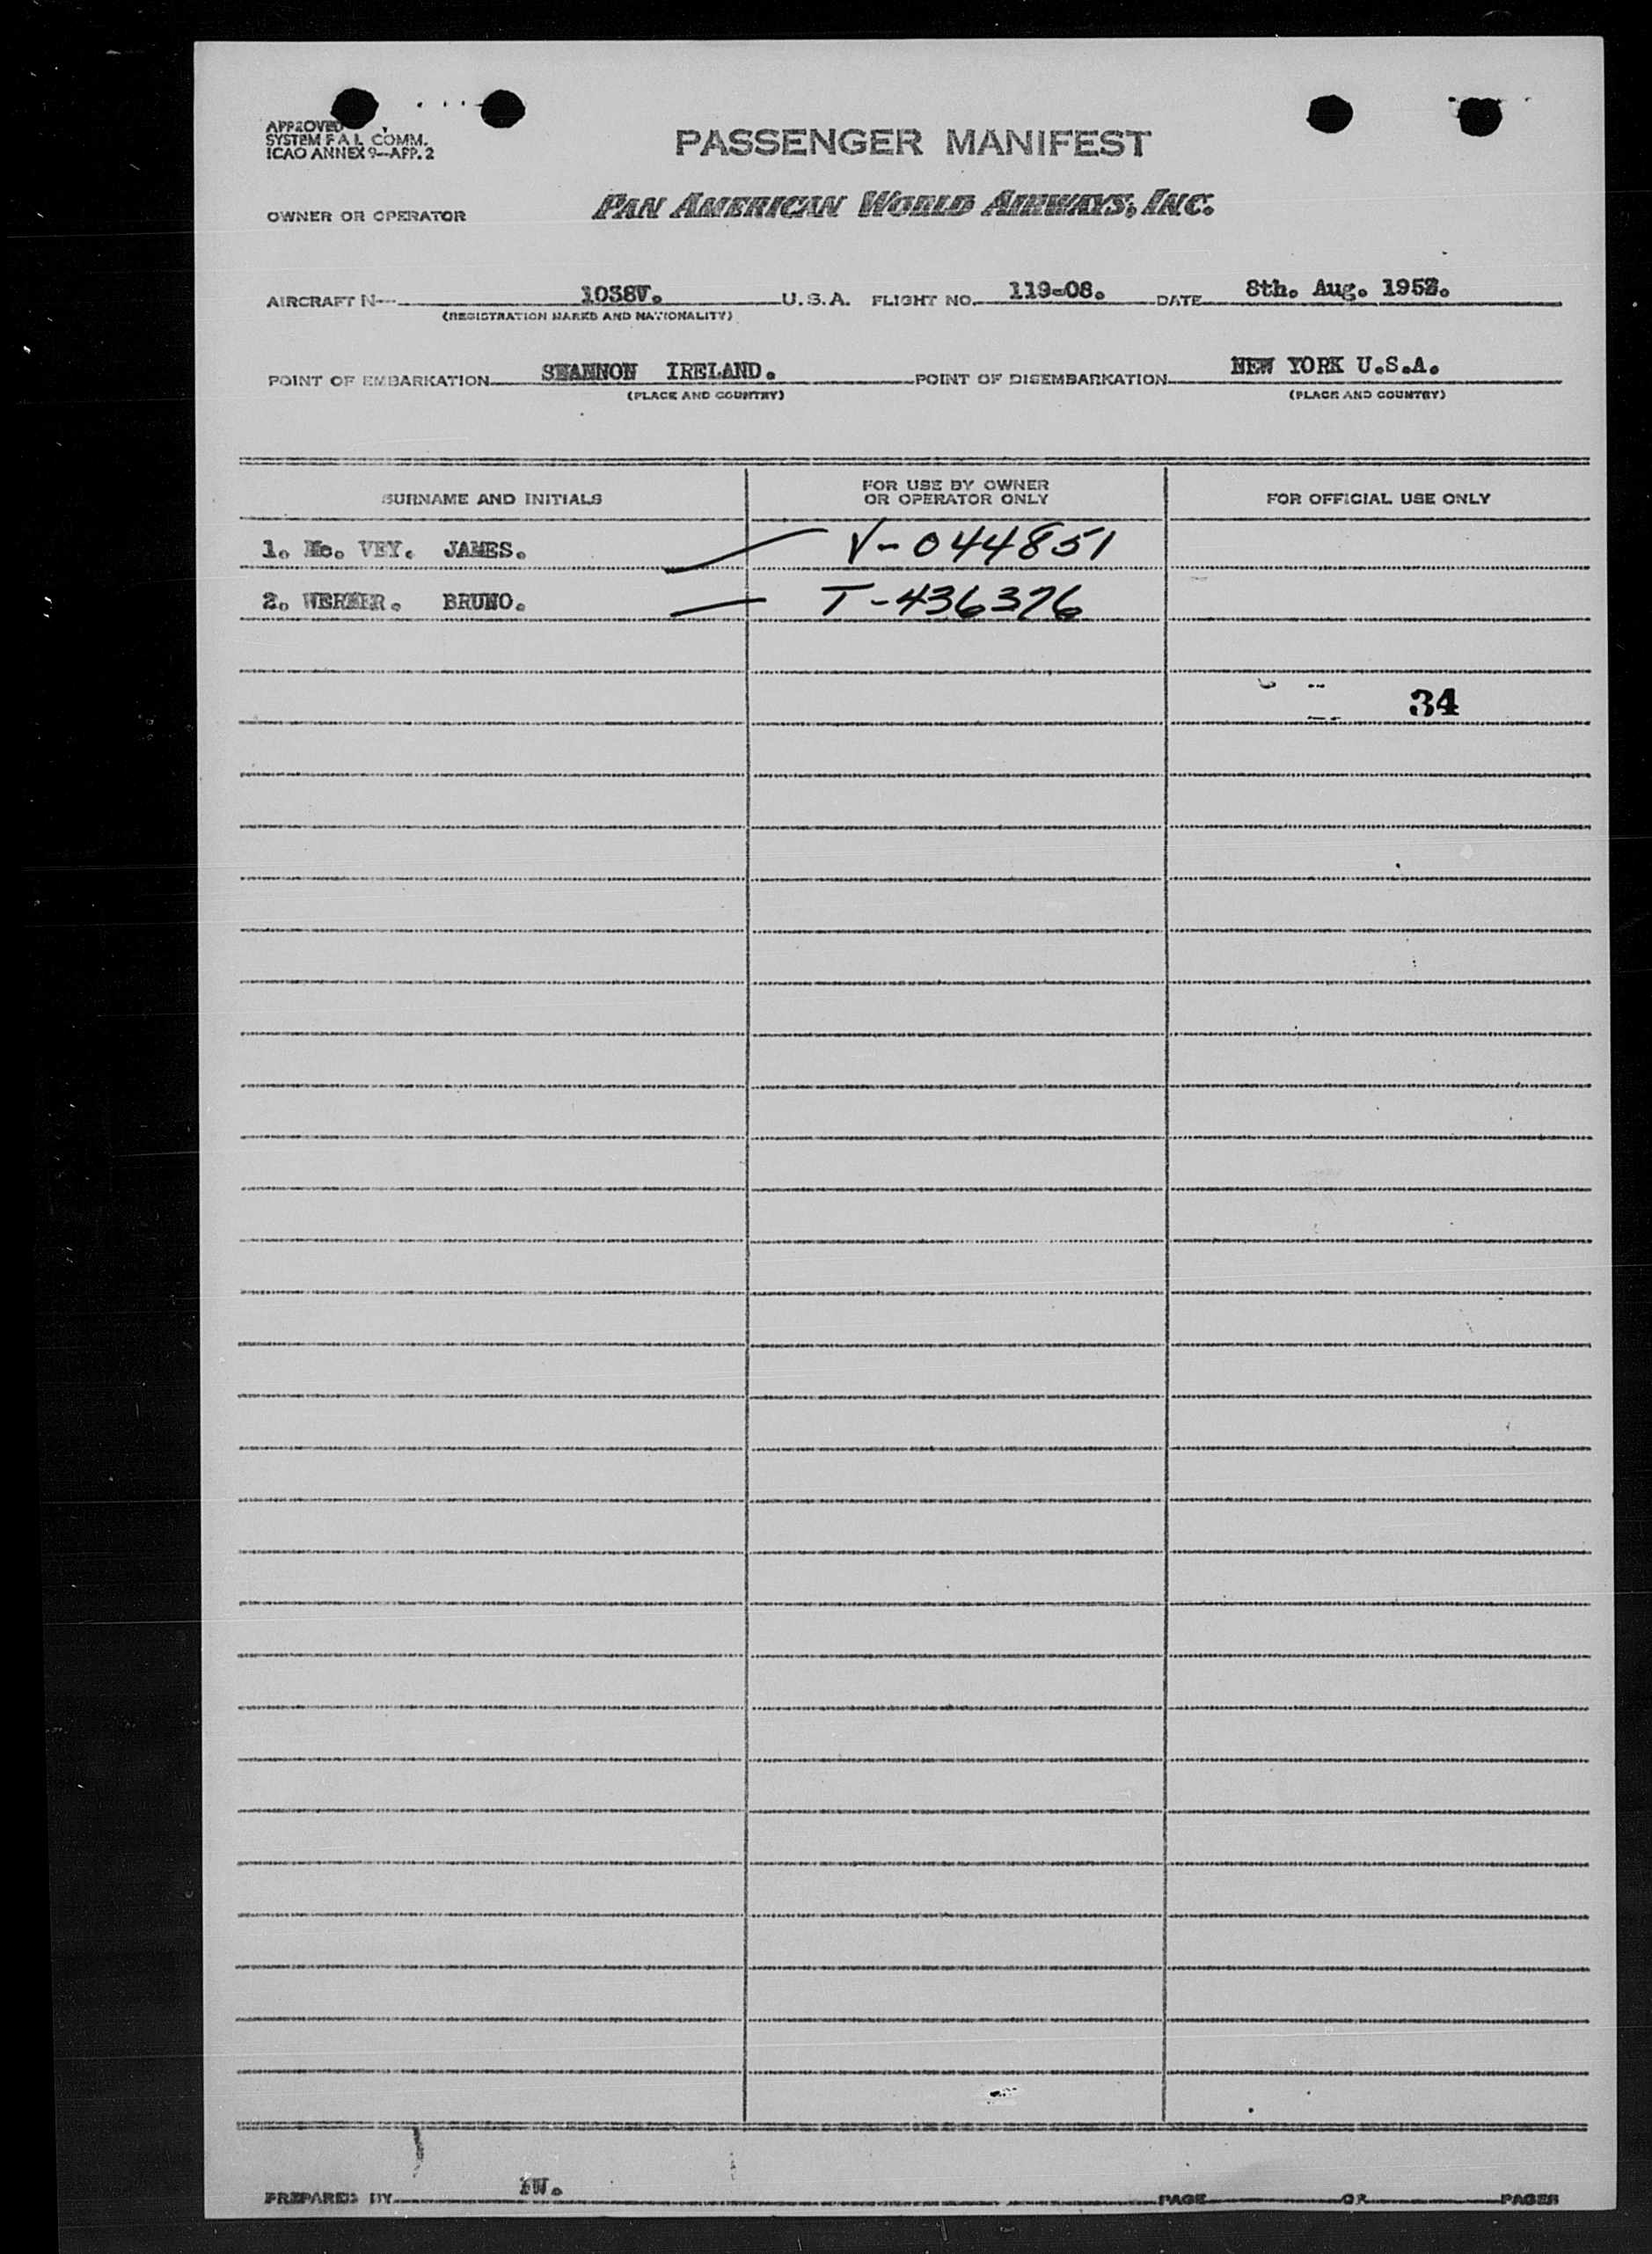 APPROVED
SYSTEM F A L COMM.
ICAO ANNEX 9—APP. 2
PASSENGER MANIFEST
OWNER OR OPERATOR PAN AMERICAN WORLD AIRWAYS, INC.
AIRCRAFT N— 1038V. U.S.A. FLIGHT NO. 119-08. DATE 8th. Aug. 1952.
(REGISTRATION MARKS AND NATIONALITY)
POINT OF EMBARKATION SHANNON IRELAND. POINT OF DISEMBARKATION NEW YORK U.S.A.
(PLACE AND COUNTRY) (PLACE AND COUNTRY)
SURNAME AND INITIALS FOR USE BY OWNER OR OPERATOR ONLY FOR OFFICIAL USE ONLY
1. Mc. VEY. JAMES. V-044851
2. WERNER. BRUNO. T-436376
34
PREPARED BY PAGE OF PAGES